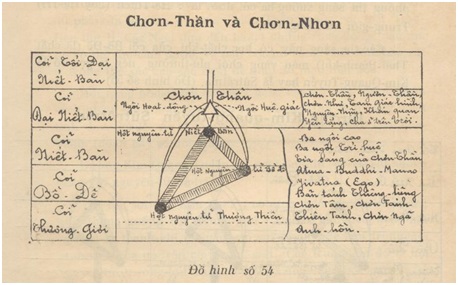 Chơn-Thần và Chơn-Nhơn
Cõi Tối Đại
Niết-Bàn
Cõi
Đại Niết-Bàn
Cõi
Niết-Bàn
Cõi
Bồ-Đề
Cõi
Thượng-Giới
Chơn Thần
Ngôi Hoạt-động
Ngôi Huệ-giác
Hột nguyên-tử Niết Bàn
Hột Nguyên tử Bồ Đề
Hột nguyên tử Thượng Thiên
Chơn-Thần, Nguơn-Thần
Chơn Như, Tam giác hình
Ba ngôi cao
Ba ngôi Trí huệ
của Chơn Thần
Atma-Buddhi-Manas
Jivatma (Ego)
Chơn Tâm, Chơn Tánh
Thiên Tánh, Chơn Ngã
Anh-hồn.
Đồ hình số 54